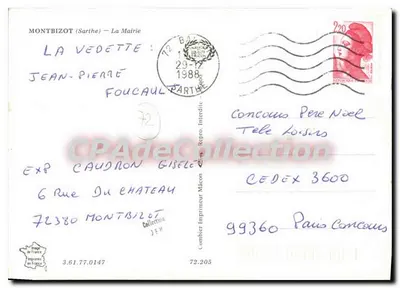 MONTBIZOT (Sarthe) — La Mairie
LA VEDETTE :
JEAN-PIERRE
FOUCAUL
72 BA
29-12
1988
SARTHE
2,20
Concours Pere Noel
Tele Loisirs
CPAdeCollection
EXP CAUDRON GISELE
6 RUE DU CHATEAU
72380 MONTBIZOT
CEDEX 3600
99360 Paris Concours
72
Combier Imprimeur Mâcon
Repro. Interdite
Collection
3.61.77.0147
72.205